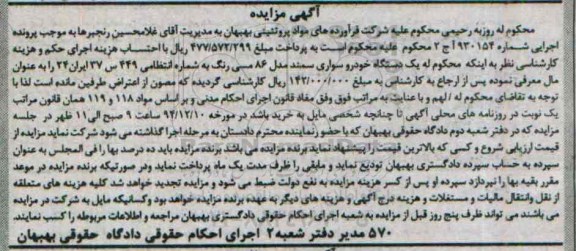 آگهی مزایده
محکوم له روزبه رحیمی محکوم علیه شرکت فرآورده های مواد پروتئینی بهبهان به مدیریت آقای غلامحسین رنجبرها به موجب پرونده
اجرایی شماره ۹۳۰۱۵۴ ج ۲ محکوم علیه محکوم است به پرداخت مبلغ ۴۷۷/۵۷۲/۲۹۹ ریال با احتساب هزینه اجرای حکم و هزینه
کارشناسی نظر به اینکه محکوم له یک دستگاه خودرو سواری سمند مدل ۸۶ مسی رنگ به شماره انتظامی ۴۴۹ س ۳۷ ایران ۲۴ را به عنوان
مال معرفی نموده پس از ارجاع به کارشناسی به مبلغ ۱۴۳/۰۰۰/۰۰۰ ریال کارشناسی گردیده که مصون از اعتراض طرفین مانده است لذا با
توجه به تقاضای محکوم له / الهم و با عنایت به مراتب فوق وفق مفاد قانون اجرای احکام مدنی و بر اساس مواد ۱۱۸ و ۱۱۹ همان قانون مراتب
یک نوبت در روزنامه های محلی آگهی تا چنانچه شخصی مایل به خرید باشد در مورخه ۹۴/۱۲/۱۰ ساعت ۹ صبح الی ۱۱ ظهر در جلسه
مزایده که در دفتر شعبه دوم دادگاه حقوقی بهبهان که با حضور نماینده محترم دادستان به مرحله اجرا گذاشته می شود شرکت نماید مزایده از
قیمت ارزیابی شروع و کسی که بالاترین قیمت را پیشنهاد نماید برنده مزایده خواهد بود برنده مزایده باید ده درصد بها را فی المجلس به عنوان
سپرده به حساب سپرده دادگستری بهبهان تودیع نماید و مابقی را ظرف مدت یک ماه پرداخت نماید ودر صورتیکه برنده مزایده در موعد
مقرر بقیه بها را نپردازد سپرده او پس از کسر هزینه مزایده به نفع دولت ضبط می شود و مزایده تجدید خواهد شد کلیه هزینه های متعلقه
از نقل وانتقال مالیات و مستغلات و هزینه درج آگهی و هزینه های دیگر به عهده برنده مزایده خواهد بود وکسانیکه مایل به شرکت در مزایده
می باشند می تواند ظرف پنج روز قبل از مزایده به شعبه اجرای احکام حقوقی دادگستری بهبهان مراجعه و اطلاعات مربوطه را کسب نمایند.
۵۷۰ مدیر دفتر شعبه ۲ اجرای احکام حقوقی دادگاه حقوقی بهبهان